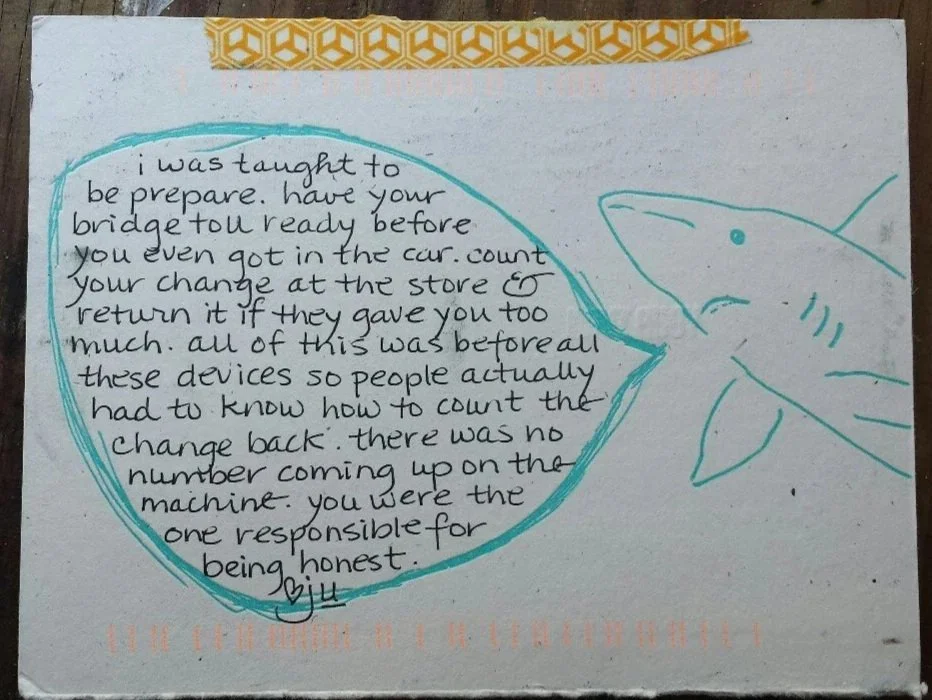 i was taught to
be prepare. have your
bridge toll ready before
you even got in the car. count
your change at the store &
return it if they gave you too
much. all of this was before all
these devices so people actually
had to know how to count the
change back. there was no
number coming up on the
machine. you were the
one responsible for
being honest.
♡ju